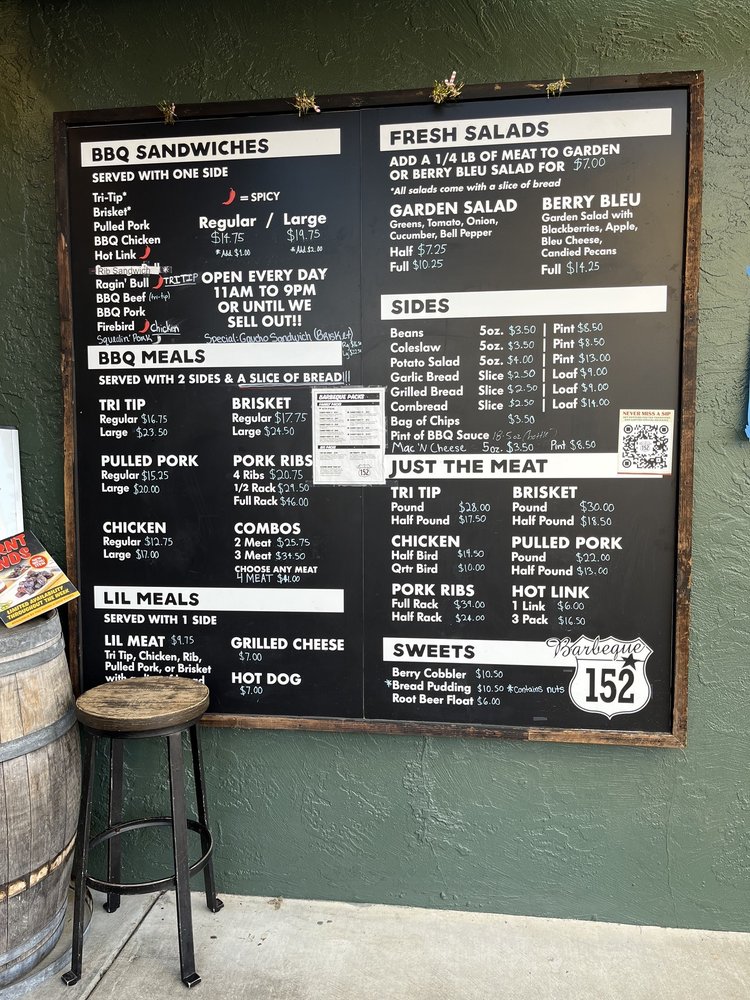 BBQ SANDWICHES
SERVED WITH ONE SIDE
Tri-Tip*
Brisket*
Pulled Pork
BBQ Chicken
Hot Link
Rib Sandwich
Ragin' Bull TRITIP
BBQ Beef (tri-tip)
BBQ Pork
Firebird chicken
Squealin' Pork
= SPICY
Regular / Large
$14.75 $19.75
*Add $1.00 *Add $2.00
OPEN EVERY DAY
11AM TO 9PM
OR UNTIL WE
SELL OUT!!
Special: Gaucho Sandwich (Brisket)
BBQ MEALS
SERVED WITH 2 SIDES & A SLICE OF BREAD
TRI TIP
Regular $16.75
Large $23.50
BRISKET
Regular $17.75
Large $24.50
PULLED PORK
Regular $15.25
Large $20.00
PORK RIBS
4 Ribs $20.75
1/2 Rack $29.50
Full Rack $46.00
CHICKEN
Regular $12.75
Large $17.00
COMBOS
2 Meat $25.75
3 Meat $34.50
CHOOSE ANY MEAT
4 MEAT $41.00
LIL MEALS
SERVED WITH 1 SIDE
LIL MEAT $9.75
Tri Tip, Chicken, Rib,
Pulled Pork, or Brisket
GRILLED CHEESE
$7.00
HOT DOG
$7.00
BARBEQUE PACKS
FRESH SALADS
ADD A 1/4 LB OF MEAT TO GARDEN
OR BERRY BLEU SALAD FOR $7.00
*All salads come with a slice of bread
GARDEN SALAD
Greens, Tomato, Onion,
Cucumber, Bell Pepper
Half $7.25
Full $10.25
BERRY BLEU
Garden Salad with
Blackberries, Apple,
Bleu Cheese,
Candied Pecans
Full $14.25
SIDES
Beans 5oz. $3.50 | Pint $8.50
Coleslaw 5oz. $3.50 | Pint $8.50
Potato Salad 5oz. $4.00 | Pint $13.00
Garlic Bread Slice $2.50 | Loaf $9.00
Grilled Bread Slice $2.50 | Loaf $9.00
Cornbread Slice $2.50 | Loaf $14.00
Bag of Chips $3.50
Pint of BBQ Sauce
Mac 'N Cheese 5oz. $3.50 Pint $8.50
NEVER MISS A SIP
JUST THE MEAT
TRI TIP
Pound $28.00
Half Pound $17.50
BRISKET
Pound $30.00
Half Pound $18.50
CHICKEN
Half Bird $19.50
Qrtr Bird $10.00
PULLED PORK
Pound $22.00
Half Pound $13.00
PORK RIBS
Full Rack $39.00
Half Rack $24.00
HOT LINK
1 Link $6.00
3 Pack $16.50
SWEETS
Berry Cobbler $10.50
*Bread Pudding $10.50 *Contains nuts
Root Beer Float $6.00
Barbeque
152
LIMITED AVAILABILITY
THROUGHOUT THE WEEK